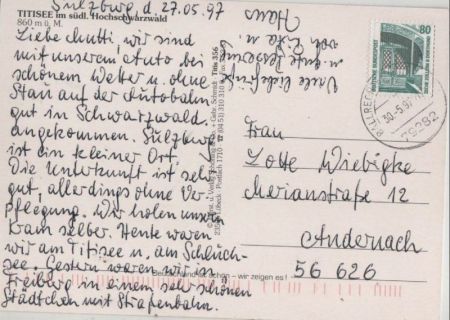 Sulzburg, d. 27.05.97
TITISEE im südl. Hochschwarzwald
860 m ü. M.
Liebe Mutti, wir sind
mit unserem Auto bei
schönem Wetter u. ohne
Stau auf der Autobahn
gut in Schwarzwald
angekommen. Sulzburg
ist ein kleiner Ort,
Die Unterkunft ist sehr
gut, allerdings ohne Ver
pflegung. Wir holen unsern
Kram selber. Heute waren
wir am Titisee u. am Schluch-
see. Gestern waren wir in
Freiburg in einem sehr schönen
Städtchen mit Straßenbahn.
Viele liebe Grüße
von Rita u.
Hans
Titis 356
80
DEUTSCHE BUNDESPOST
30.-5.97
79282
Frau
Lotte Wiebigke
Merianstraße 12
Andernach
56 626
wir zeigen es!